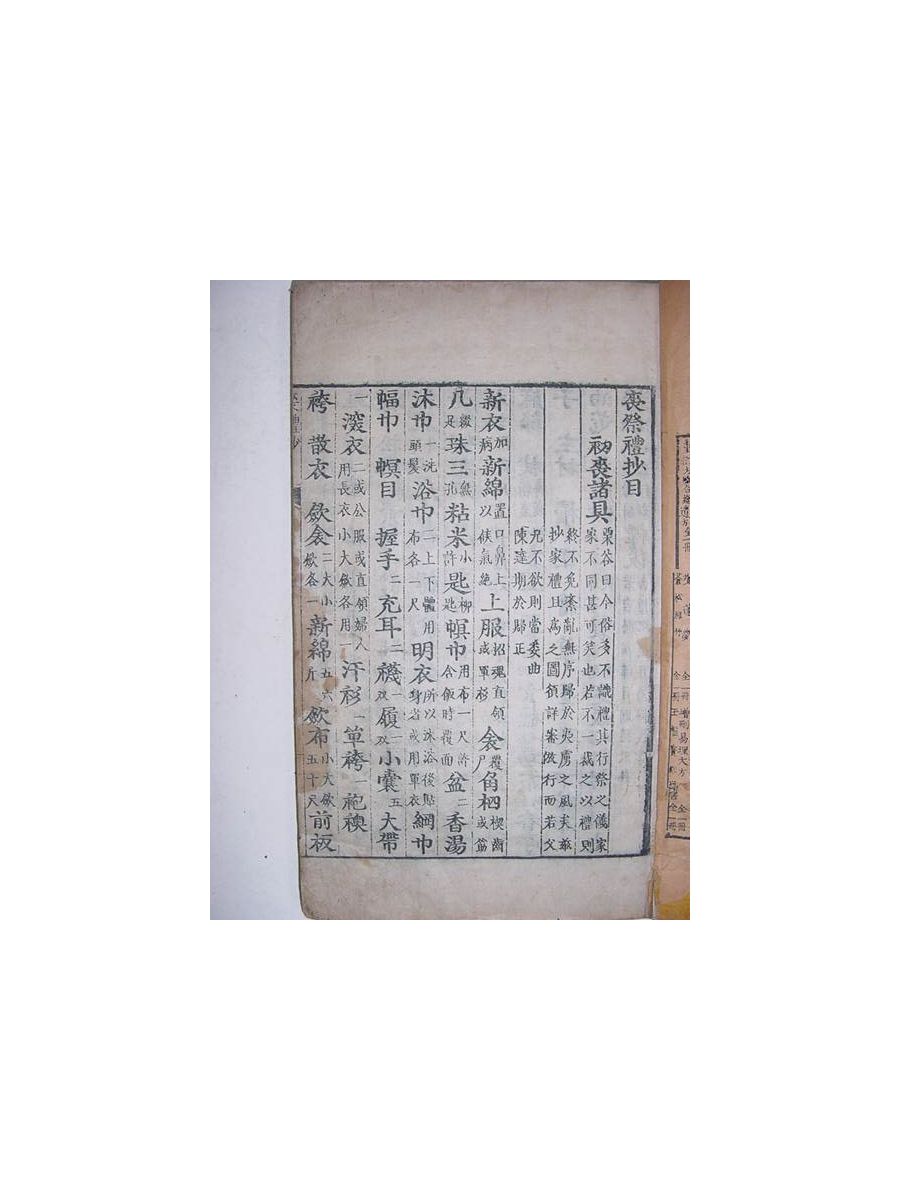 喪祭禮抄目
初喪諸具 栗谷曰今俗多不識禮其行祭之儀家
家不同甚可笑也若不一裁之以禮則
終不免紊亂無序歸於夷虜之風矣玆
抄家禮且爲之圖須詳審倣行而若父
兄不欲則當委曲
陳達期於歸正
新衣 加病 新綿 置口鼻上以候氣絶 上服 招魂直領或單衫 衾 覆尸 角柶 楔齒或筯
几 綴足 珠三 無孔 粘米 小許 匙 柳匙 幎巾 用布一尺許含飯時覆面 盆二 香湯
沐巾 一洗頭髮 浴巾 二上下體用布各一尺 明衣 所以沐浴後貼身者或用單衣 網巾
幅巾 幎目 握手二 充耳二 襪一双 履一双 小囊五 大帶
一 深衣 二或公服或直領婦人用長衣小大斂各用一 汗衫一 單袴一 袍襖
袴 散衣 斂衾 二大小斂各一 新綿 五六斤 斂布 小大斂五十尺 前板